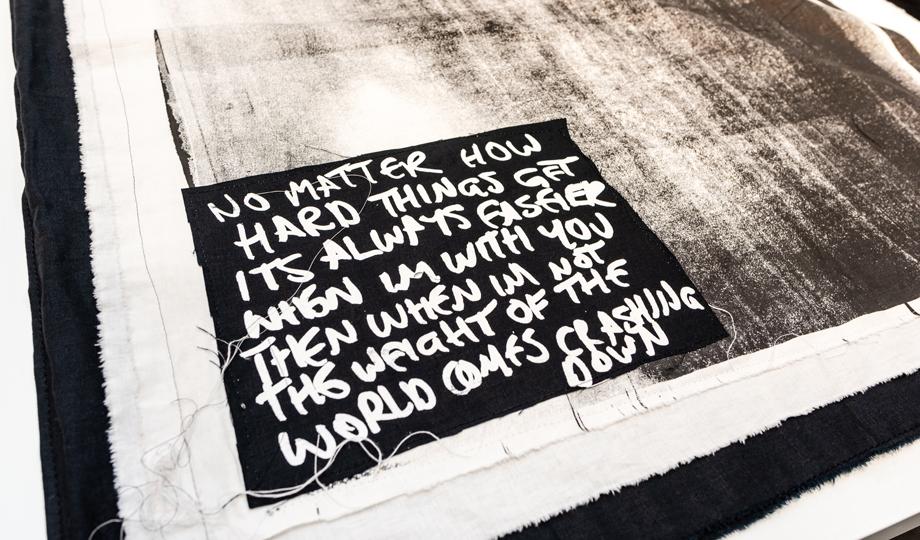 NO MATTER HOW
HARD THINGS GET
ITS ALWAYS EASEIER
WHEN IM WITH YOU
THEN WHEN IM NOT
THE WEIGHT OF THE
WORLD COMES CRASHING
DOWN